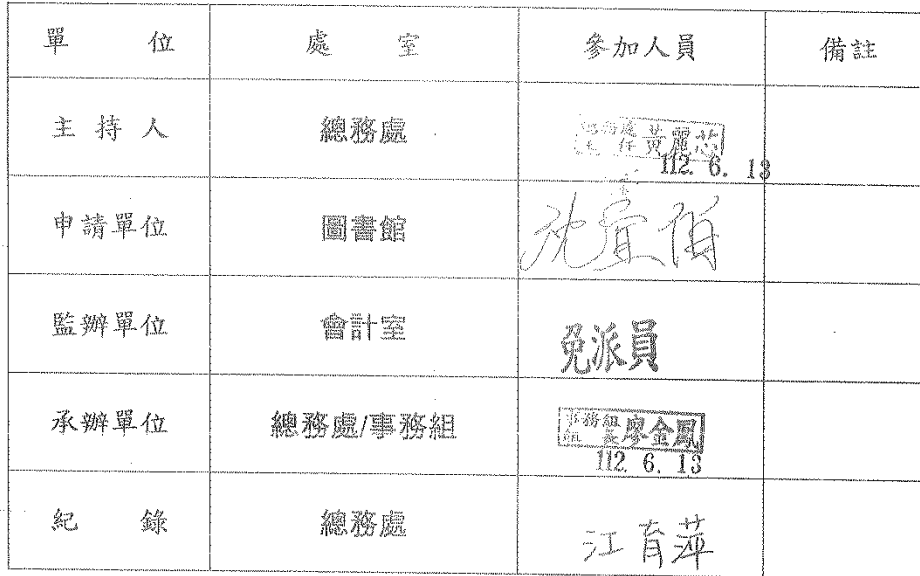 單 位 處 室 參加人員 備註
主 持 人 總務處 總務處 主 任 黃麗芯
112. 6. 13
申請單位 圖書館 沈宜
監辦單位 會計室 免派員
承辦單位 總務處/事務組 事務組 組 長 廖金鳳
112. 6. 13
紀 錄 總務處 江育萍